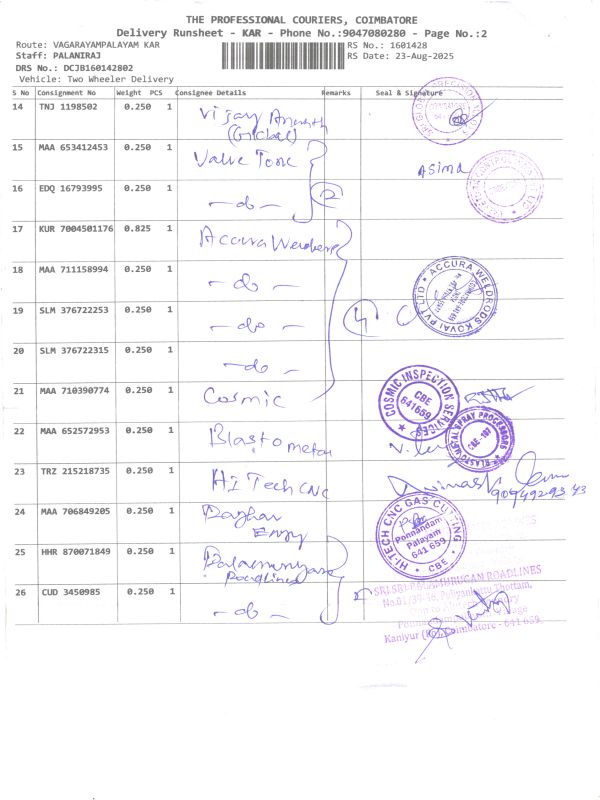 THE PROFESSIONAL COURIERS, COIMBATORE
Delivery Runsheet - KAR - Phone No.:9047080280 - Page No.:2
Route: VAGARAYAMPALAYAM KAR
RS No.: 1601428
Staff: PALANIRAJ
RS Date: 23-Aug-2025
DRS No.: DCJB160142802
Vehicle: Two Wheeler Delivery
S No Consignment No Weight PCS Consignee Details Remarks Seal & Signature
14 TNJ 1198502 0.250 1 Vijay
(Global)
15 MAA 653412453 0.250 1 Valve Tone Asima
16 EDQ 16793995 0.250 1 - do - 2
17 KUR 7004501176 0.825 1 Accura
18 MAA 711158994 0.250 1 - do -
ACCURA WELDRODS KOVAI PVT LTD
19 SLM 376722253 0.250 1 - do - 4
20 SLM 376722315 0.250 1 - do -
21 MAA 710390774 0.250 1 Cosmic
COSMIC INSPECTION SERVICES
CBE
641659
22 MAA 652572953 0.250 1 Blasto metal
BLASTO METAL SPRAY PROCESSORS
CBE-107
23 TRZ 215218735 0.250 1 Hi Tech CNC
9094929343
24 MAA 706849205 0.250 1
HI-TECH CNC GAS CUTTING
Ponnandam
Palayam
641 659
CBE
25 HHR 870071849 0.250 1
Roadlines
26 CUD 3450985 0.250 1 - do -
ROADLINES
Thottam,
Kaniyur Coimbatore - 641 659